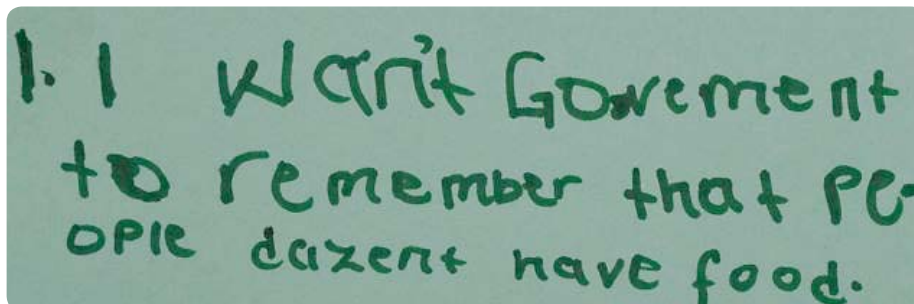 1. I Wan't Govrement
to remember that pe-
ople dazent have food.